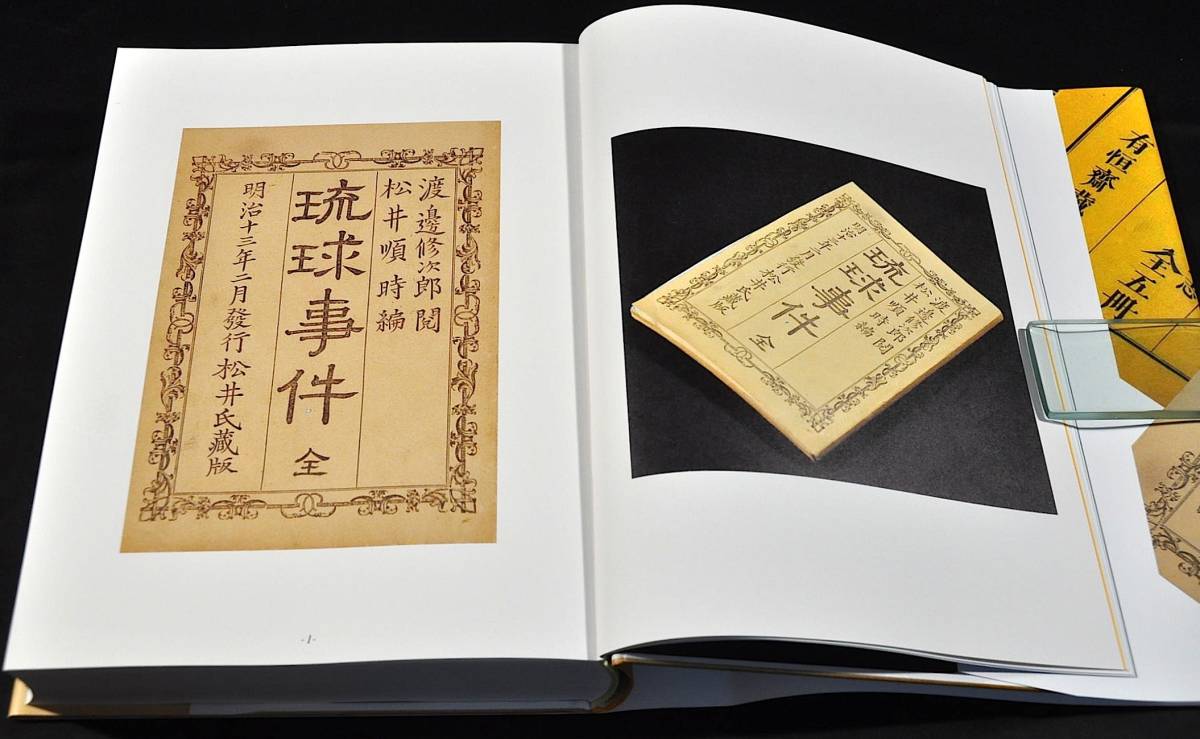 渡邊修次郎閲
松井順時編
琉球事件 全
明治十三年二月發行 松井氏藏版
-1-
渡邊修次郎閲
松井順時編
琉球事件 全
明治十三年二月發行 松井氏藏版
全五冊
有恒齋藏